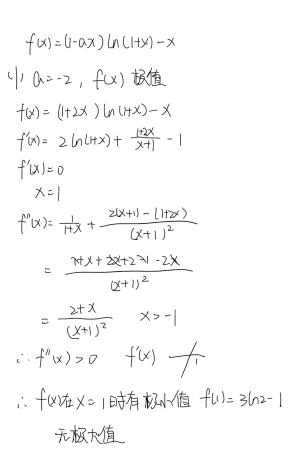 f(x)=(1-ax)ln(1+x)-x
(1) a=-2, f(x) 极值
f(x)=(1+2x)ln(1+x)-x
f'(x)=2ln(1+x)+\frac{1+2x}{x+1}-1
f'(x)=0
x=1
f''(x)=\frac{1}{1+x}+\frac{2(x+1)-(1+2x)}{(x+1)^2}
=\frac{1+x+2x+2-1-2x}{(x+1)^2}
=\frac{2+x}{(x+1)^2} x>-1
∴f''(x)>0 f'(x) 1
∴f(x)在x=1时有极小值 f(1)=3ln2-1
无极大值